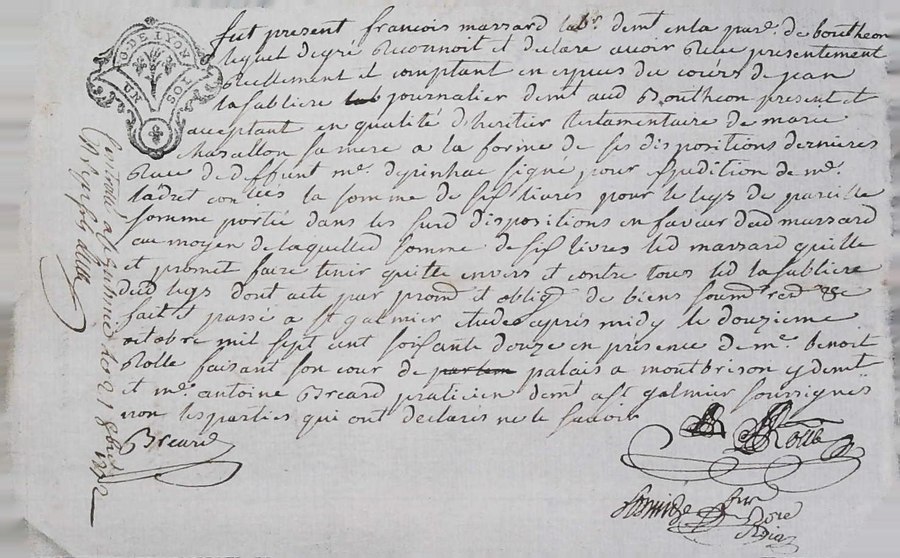 G. DE LYON
UN SOL
fut present francois massard labr demt en la parse de boutheon
lequel degré reconnoit et declare avoir reçu presentement
reellement et comptant en espuces du cours de jean
lasabliere journalier demt aud Boutheon present et
acceptant en qualité d'heritier testamentaire de marie
chazallon sa mere a la forme de ses dispositions dernieres
receue deffunt me despinhac signé pour expedition de me
la somme de six livres pour le legs de pareille
somme portée dans les susd dispositions en faveur dud massard
au moyen de laquelled somme de six livres led massard quitte
et promet faire tenir quitte envers et contre tous led lasabliere
dud legs dont acte par prom et oblig de biens soum ren &c
fait et passé a st galmier etude apres midy le douzieme
octobre mil sept cent soixante douze en presence de me benoit
Rolle faisant son cour de palais a montbrison y demt
et me antoine Breard praticien demt a st galmier soussignes
non les parties qui ont declarés ne le savoir
Breard
Rolle
Controlé a st galmier le 1772